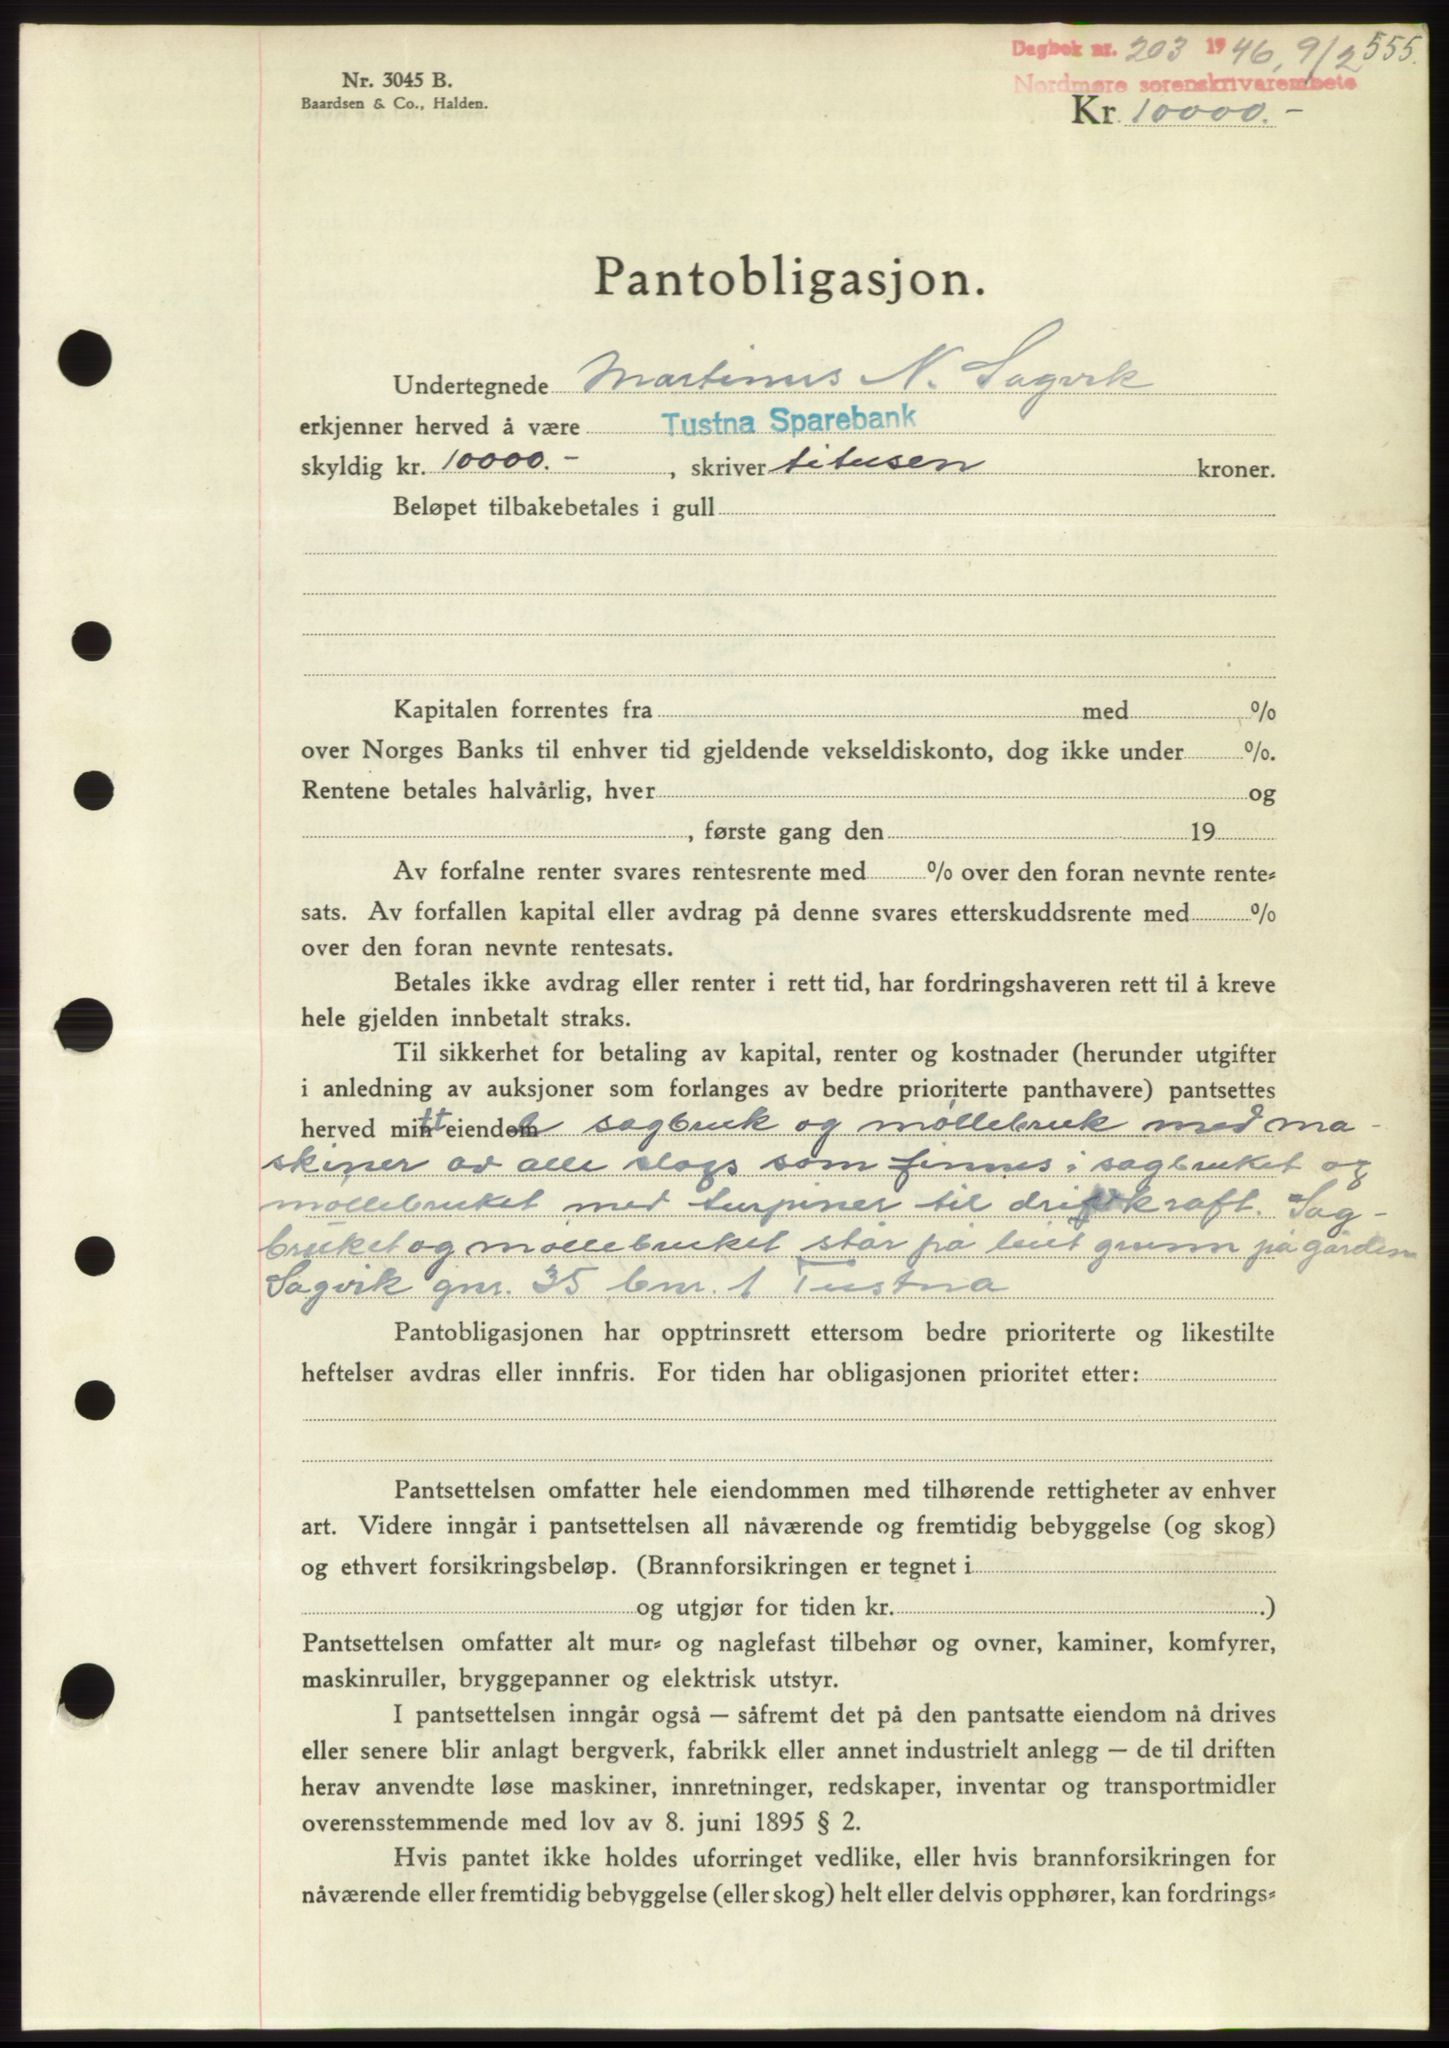 Dagbok nr. 203 1946, 9/2 555.
Nordmøre sorenskrivarembete
Nr. 3045 B.
Baardsen & Co., Halden.
Kr. 10000.-
Pantobligasjon.
Undertegnede Martinus N. Sagvik
erkjenner herved å være Tustna Sparebank
skyldig kr. 10000.- , skriver titusen kroner.
Beløpet tilbakebetales i gull
Kapitalen forrentes fra med %
over Norges Banks til enhver tid gjeldende vekseldiskonto, dog ikke under %.
Rentene betales halvårlig, hver og
, første gang den 19
Av forfalne renter svares rentesrente med % over den foran nevnte rente-
sats. Av forfallen kapital eller avdrag på denne svares etterskuddsrente med %
over den foran nevnte rentesats.
Betales ikke avdrag eller renter i rett tid, har fordringshaveren rett til å kreve
hele gjelden innbetalt straks.
Til sikkerhet for betaling av kapital, renter og kostnader (herunder utgifter
i anledning av auksjoner som forlanges av bedre prioriterte panthavere) pantsettes
herved mitt eiende sagbruk og møllebruk med ma-
skiner av alle slags som finnes i sagbruket og
møllebruket med turpiner til drivkraft. Sag-
bruket og møllebruket står på leiet grunn på gården
Sagvik gnr. 35 bnr. 1 Tustna
Pantobligasjonen har opptrinsrett ettersom bedre prioriterte og likestilte
heftelser avdras eller innfris. For tiden har obligasjonen prioritet etter:
Pantsettelsen omfatter hele eiendommen med tilhørende rettigheter av enhver
art. Videre inngår i pantsettelsen all nåværende og fremtidig bebyggelse (og skog)
og ethvert forsikringsbeløp. (Brannforsikringen er tegnet i
og utgjør for tiden kr. .)
Pantsettelsen omfatter alt mur- og naglefast tilbehør og ovner, kaminer, komfyrer,
maskinruller, bryggepanner og elektrisk utstyr.
I pantsettelsen inngår også — såfremt det på den pantsatte eiendom nå drives
eller senere blir anlagt bergverk, fabrikk eller annet industrielt anlegg — de til driften
herav anvendte løse maskiner, innretninger, redskaper, inventar og transportmidler
overensstemmende med lov av 8. juni 1895 § 2.
Hvis pantet ikke holdes uforringet vedlike, eller hvis brannforsikringen for
nåværende eller fremtidig bebyggelse (eller skog) helt eller delvis opphører, kan fordrings-